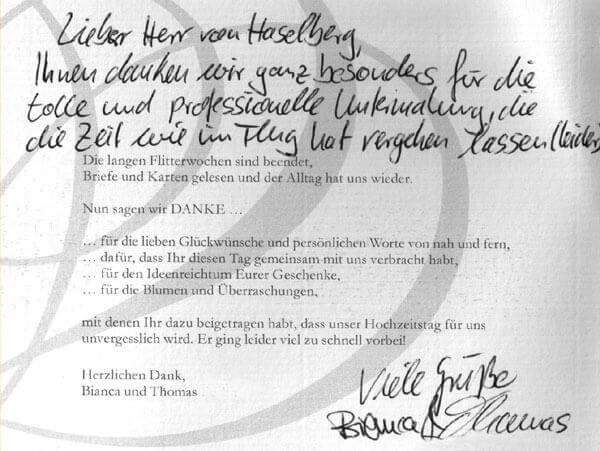 Lieber Herr von Haselberg,
Ihnen danken wir ganz besonders für die
tolle und professionelle Untermalung, die
die Zeit wie im Flug hat vergehen lassen (leider)
Die langen Flitterwochen sind beendet,
Briefe und Karten gelesen und der Alltag hat uns wieder.
Nun sagen wir DANKE ...
... für die lieben Glückwünsche und persönlichen Worte von nah und fern,
... dafür, dass Ihr diesen Tag gemeinsam mit uns verbracht habt,
... für den Ideenreichtum Eurer Geschenke,
... für die Blumen und Überraschungen,
mit denen Ihr dazu beigetragen habt, dass unser Hochzeitstag für uns
unvergesslich wird. Er ging leider viel zu schnell vorbei!
Herzlichen Dank,
Bianca und Thomas
Viele Grüße
Bianca & Thomas